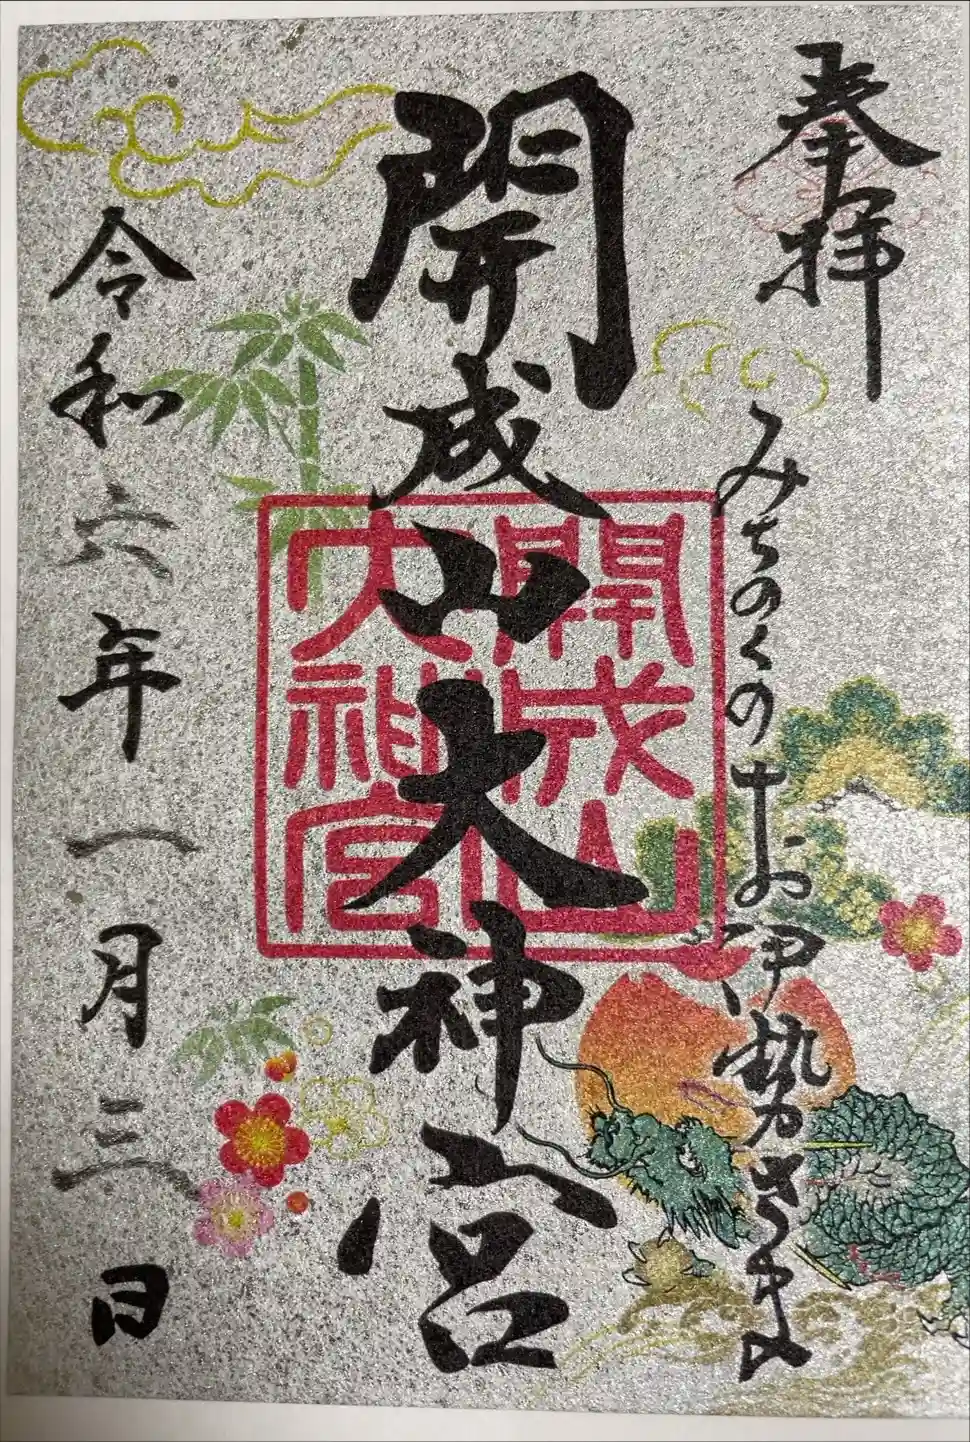 奉拝
みちのくのお伊勢さま
開成山大神宮
開成山
大神宮
令和六年一月三日